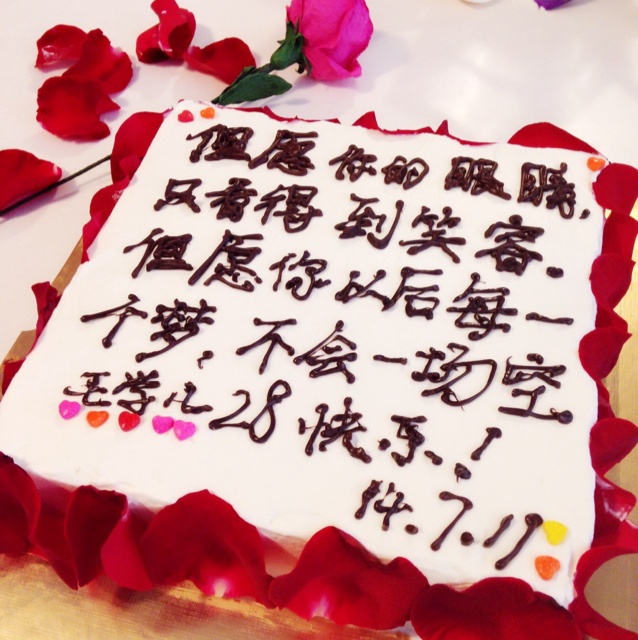 但愿你的眼睛,
只看得到笑容.
但愿你以后每一
个梦,不会一场空
王学心28快乐!
14.7.11